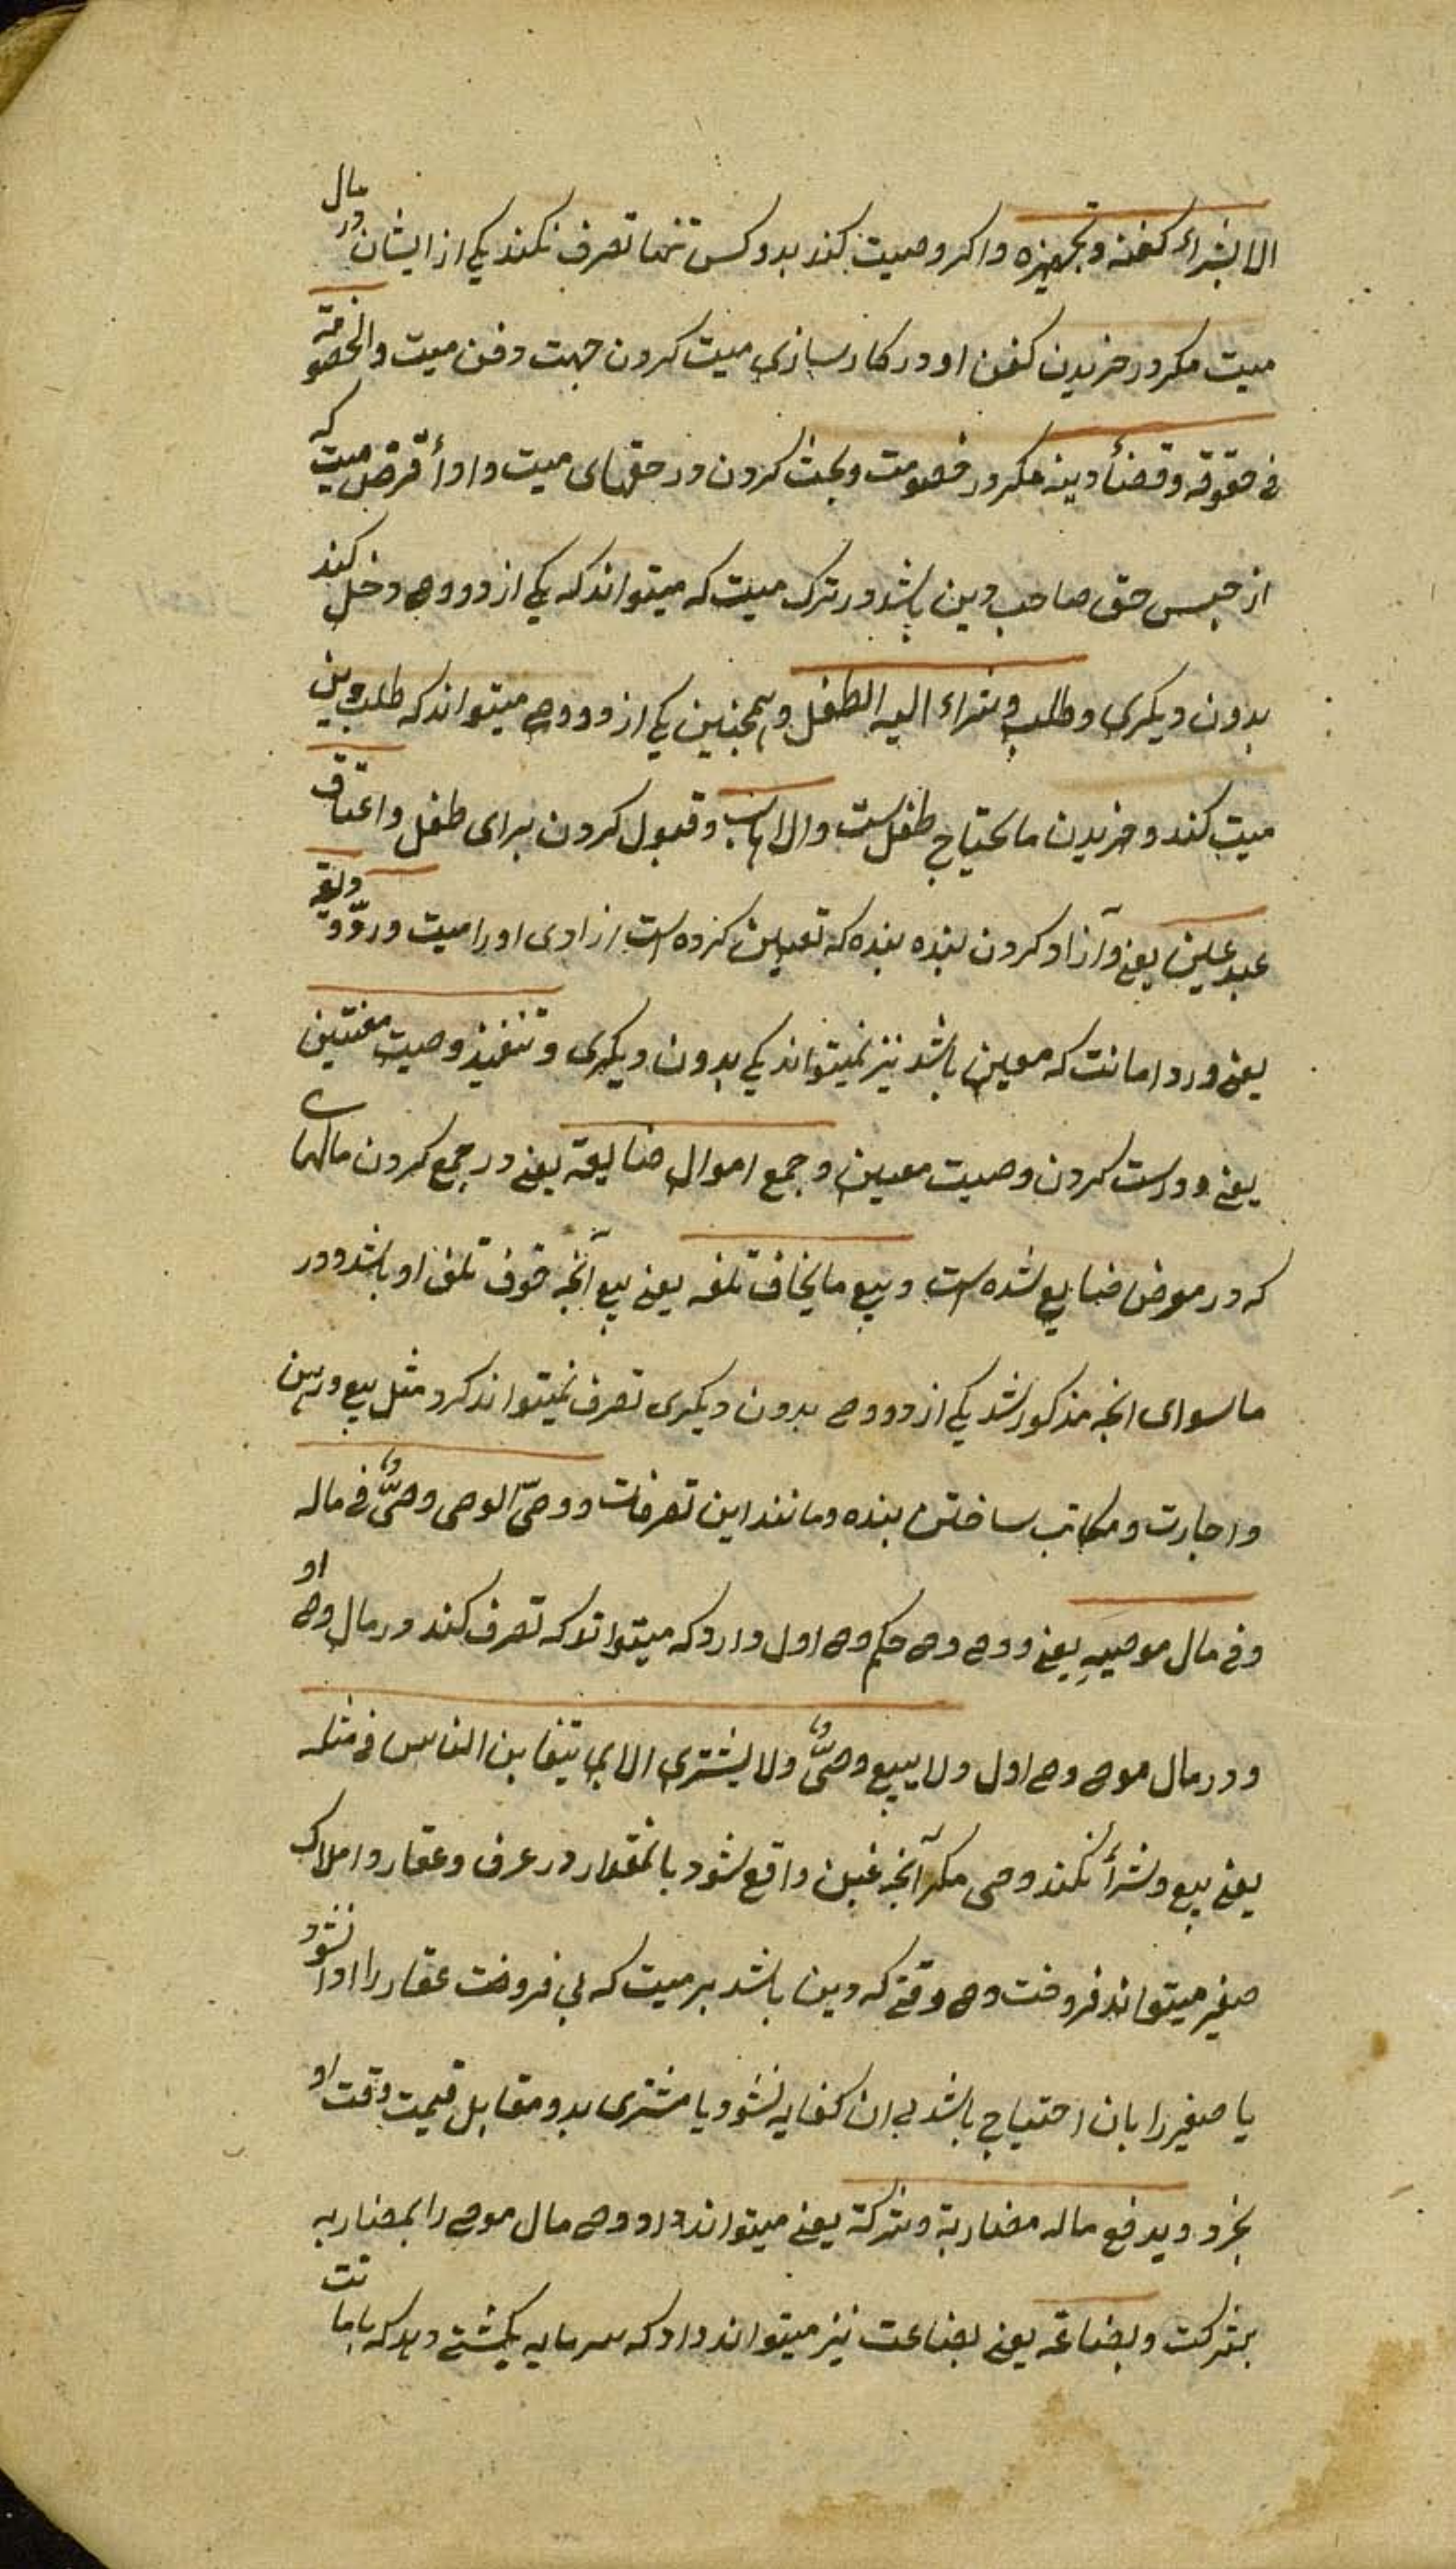 الا بشراء کفنه وتجهیزه و اکر وصیت کند بدو کس تنها تصرف نکند یکی از ایشان در مال
میت مکر در خریدن کفن او و در کار سازی میت کردن جهت دفن میت والخصومة
فی حقوقه وقضأ دینه مکر در خصومت و بحث کردن در حقهای میت و ادأ قرض میت که
از جنس حق صاحب دین باشد در ترک میت که میتواند که یکی از دو وصی دخل کند
بدون دیکری وطلب وشراء الیه الطفل و همچنین یکی از دو وصی میتواند که طلب دین
میت کند و خریدن ما یحتاج طفلست والا تهاب و قبول کردن برای طفل واعتاق
عبد عین یعنی و آزاد کردن بنده بنده که تعیین کرده است ازادی او را میت ورد ودیعة
یعنی و رد امانت که معین باشد نیز نمیتواند یکی بدون دیکری وتنفیذ وصیت معنتین
یعنی و درست کردن وصیت معین وجمع اموال ضالیعة یعنی در جمع کردن مالهای
که در معرض ضایع شده است وبیع ما یخاف تلفه یعنی بیع آنچه خوف تلف او باشد و در
ماسوای انچه مذکور شد یکی از دو وصی بدون دیکری تصرف نمیتواند کرد مثل بیع و رهن
و اجارت و مکاتب ساختن بنده و مانند این تصرفات ووصیّ الوصی وصیٌّ فی ماله
وفی مال موصیهِ یعنی و وصی وصی حکم وصی اول دارد که میتواند که تصرف کند در مال وصی او
و در مال موصی وصی اول ولا یبیع وصیٌّ ولا یشتری الا بما یتغابن الناس فی مثله
یعنی بیع و شرأ نکند وصی مکر آنچه غبن واقع شود بانمقدار در عرف و عقار و املاک
صغیر میتواند فروخت وصی وقتی که دین باشد بر میت که بی فروخت عقار را ادا نشود
یا صغیر را بان احتیاج باشد بی ان کفایه نشود یا مشتری بدو مقابل قیمت وقت او
بخرد ویدفع ماله مضاربة وشرکة یعنی میتواند داد وصی مال موصی را بمضاربه
بشرکت وبضاعة یعنی بضاعت نیز میتواند داد که سرمایه بکشتی دهد که بامانت